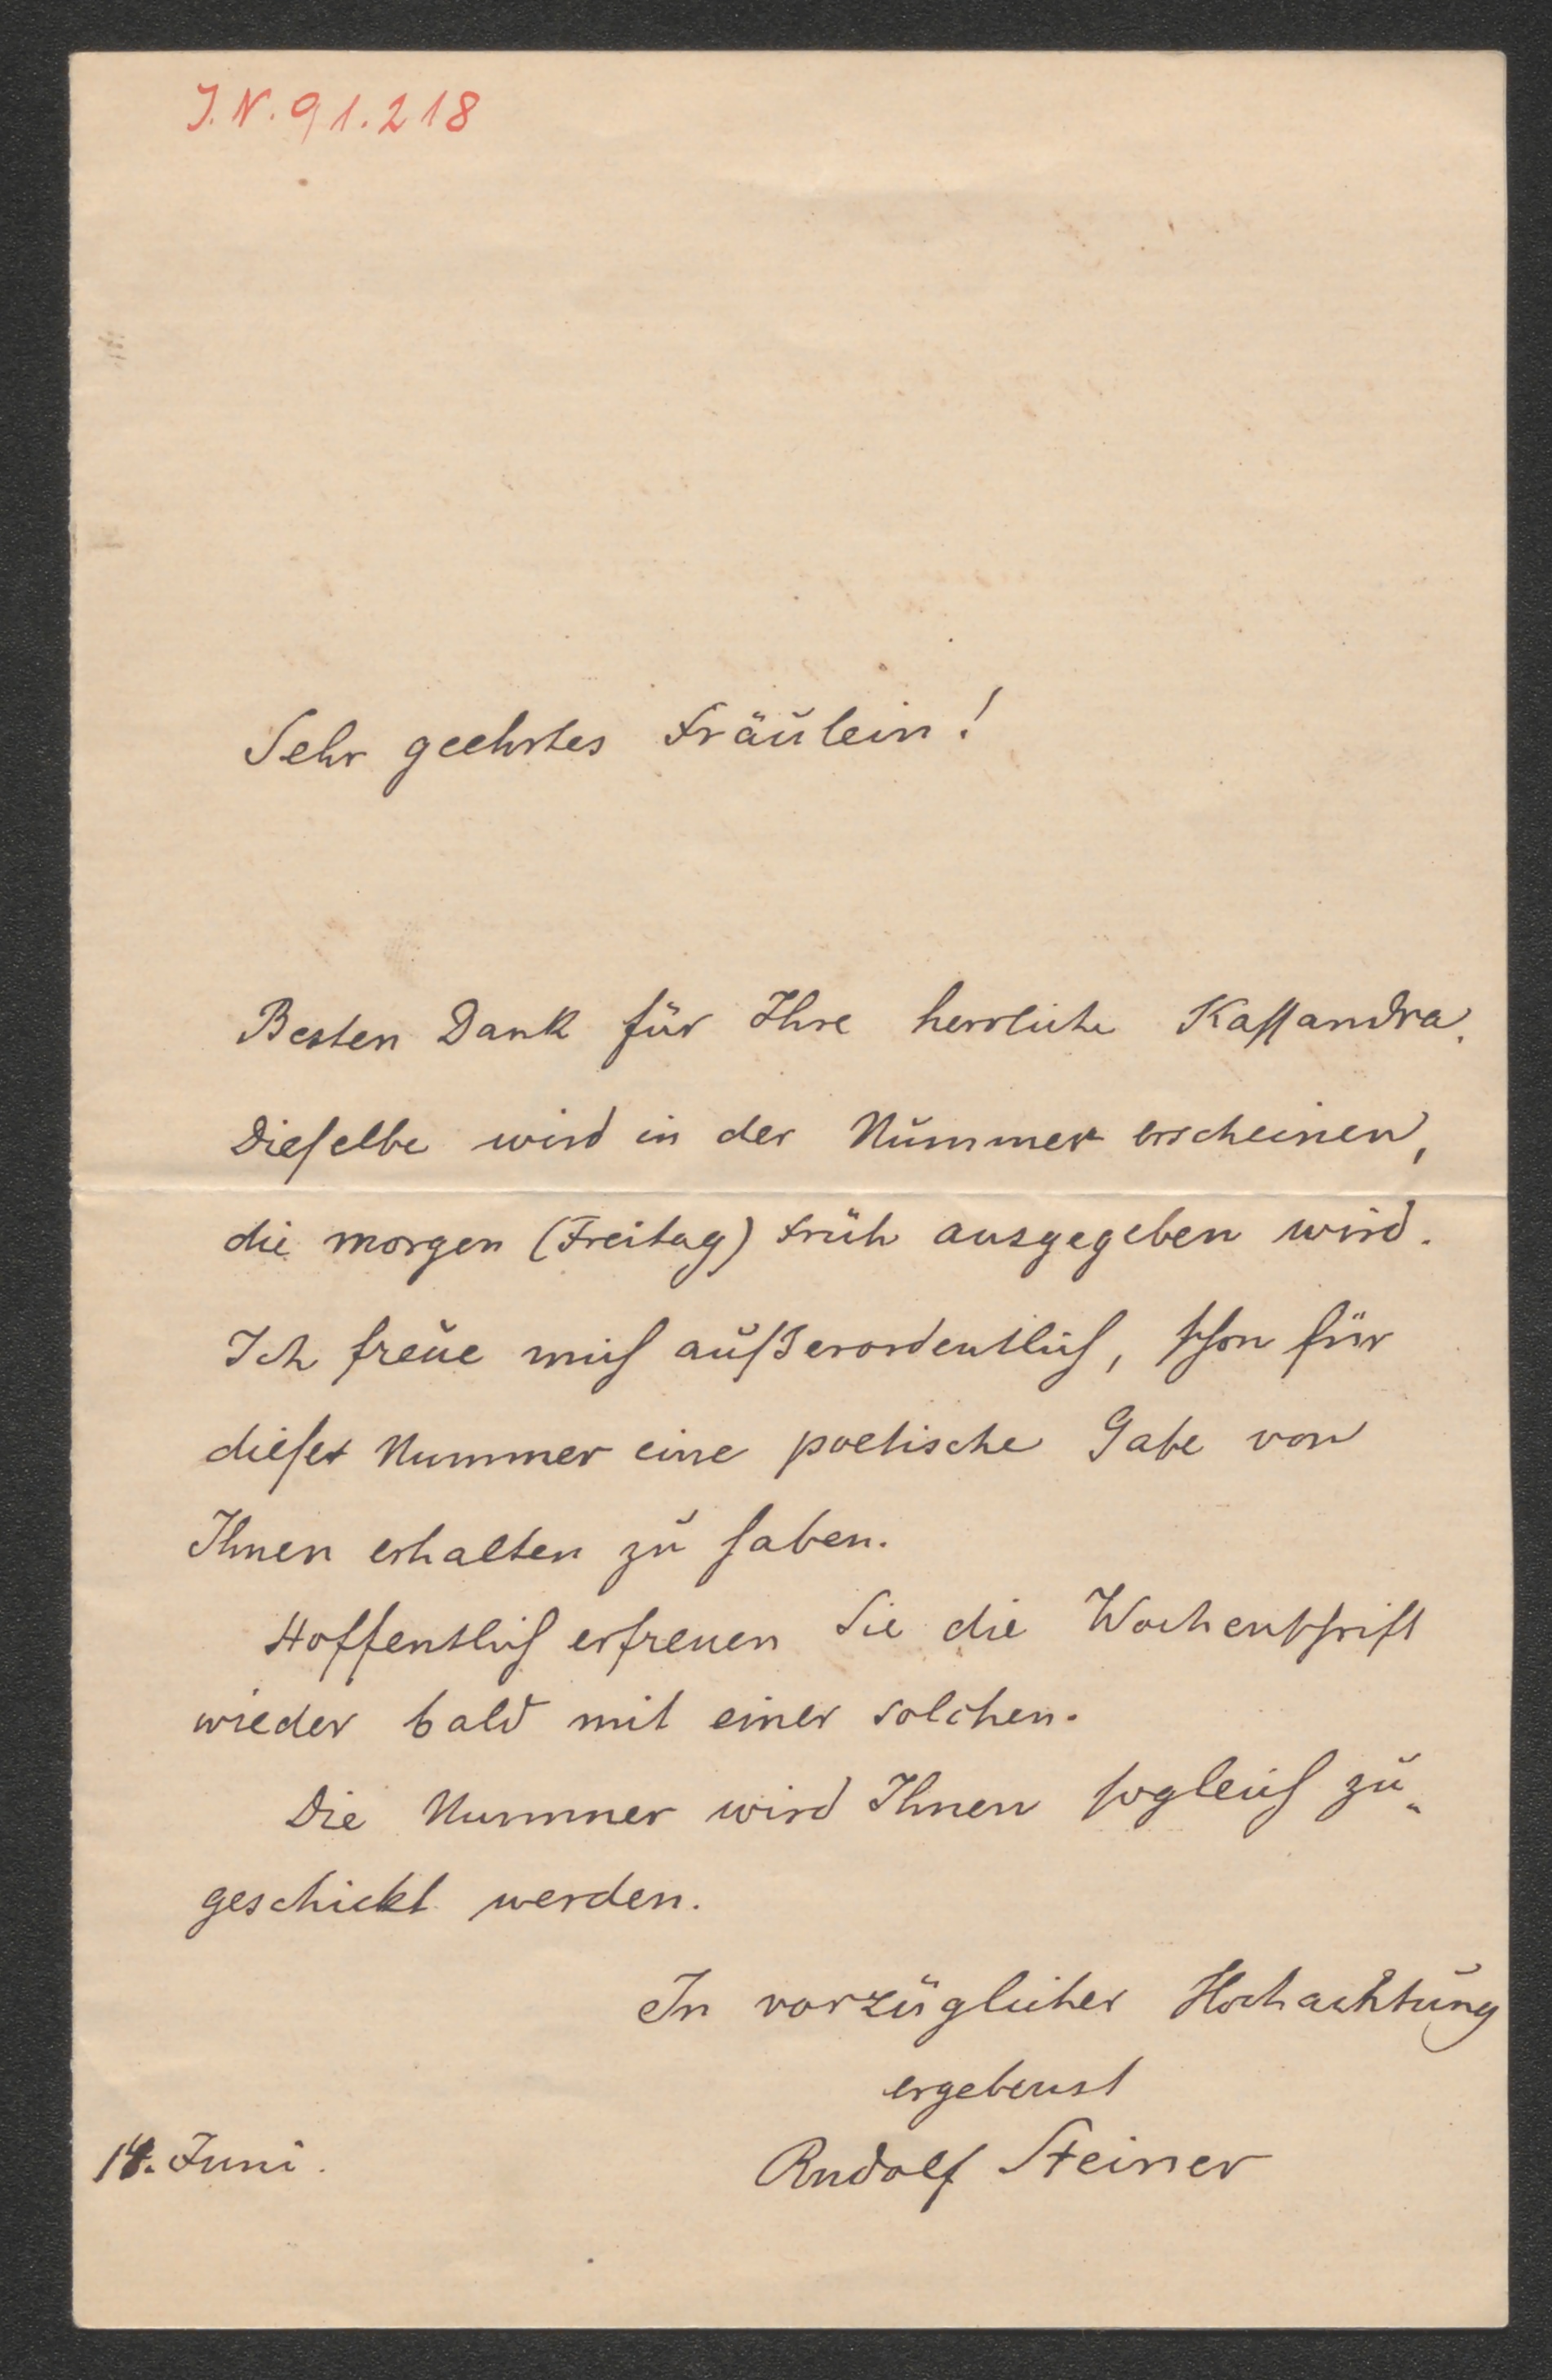 J.N. 91.218
Sehr geehrtes Fräulein!
Besten Dank für Ihre herrliche Kassandra.
Dieselbe wird in der Nummer erscheinen,
die morgen (Freitag) früh ausgegeben wird.
Ich freue mich außerordentlich, schon für
diese Nummer eine poetische Gabe von
Ihnen erhalten zu haben.
Hoffentlich erfreuen Sie die Wochenschrift
wieder bald mit einer solchen.
Die Nummer wird Ihnen sogleich zu-
geschickt werden.
In vorzüglicher Hochachtung
ergebenst
14. Juni. Rudolf Steiner